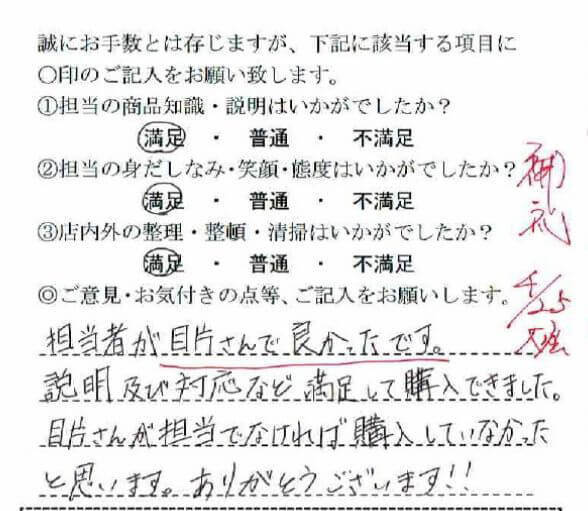 誠にお手数とは存じますが、下記に該当する項目に
〇印のご記入をお願い致します。
①担当の商品知識・説明はいかがでしたか？
満足 ・ 普通 ・ 不満足
②担当の身だしなみ・笑顔・態度はいかがでしたか？
満足 ・ 普通 ・ 不満足
③店内外の整理・整頓・清掃はいかがでしたか？
満足 ・ 普通 ・ 不満足
◎ご意見・お気付きの点等、ご記入をお願いします。
担当者が目片さんで良かったです。
説明及び対応など満足して購入できました。
目片さんが担当でなければ購入していなかった
と思います。ありがとうございます!!
御礼
4/25